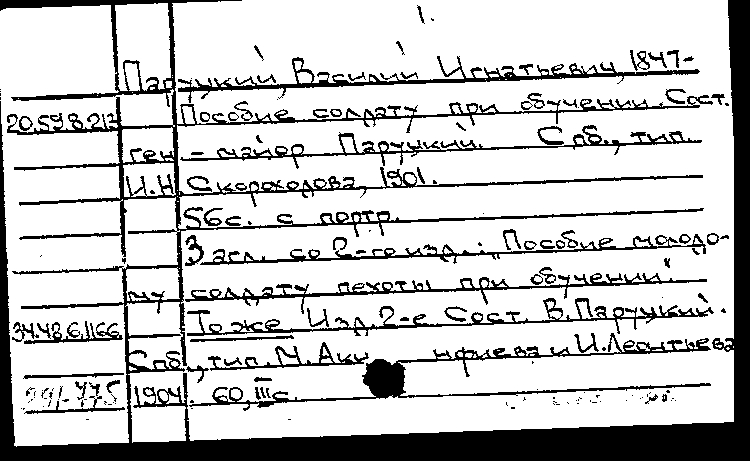 1.
Паруцкий, Василий Игнатьевич, 1847-
20.59.8.213 Пособие солдату при обучении. Сост.
ген-майор Паруцкий. Спб., тип.
И.Н. Скороходова, 1901.
56с. с портр.
Загл. со 2-го изд.: "Пособие молодо-
му солдату пехоты при обучении".
34.48.6.1166 То же Изд. 2-е Сост. В. Паруцкий.
Спб., тип. М. Акинфиева и И. Леонтьева
291-775 1904. 60, III с.